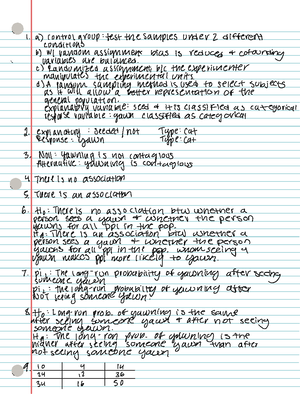 1. a) control group: test the samples under 2 different
conditions
b) w/ random assignment bias is reduced & cofounding
variables are balanced.
c) Randomized assignment b/c the experimenter
manipulates the experimental units
d) A random sampling method is used to select subjects
as it will allow a better representation of the
general population.
explanatory variable: seed & is classified as categorical
response variable: yawn classified as categorical
2. explanatory: Seeded/not Type: Cat
Response: Yawn Type: Cat
3. Null: Yawning is not contagious
Alternative: Yawning is contagious
4. There is no association
5. There is an association
6. H₀: There is no association btw whether a
person sees a yawn & whether the person
yawns for all ppl in the pop.
Hₐ: There is an association btw whether a
person sees a yawn & whether the person
yawns for all ppl in the pop. seeing a
yawn makes ppl more likely to yawn.
7. pi₁: The long-run probability of yawning after seeing
someone yawn
pi₂: The long-run probability of yawning after
NOT seeing someone yawn
8. H₀: Long-run prob. of yawning is the same
after seeing someone yawn & after not seeing
someone yawn.
Hₐ: The long-run prob. of yawning is the
higher after seeing someone yawn than after
not seeing someone yawn
9. 10 4 14
24 12 36
34 16 50